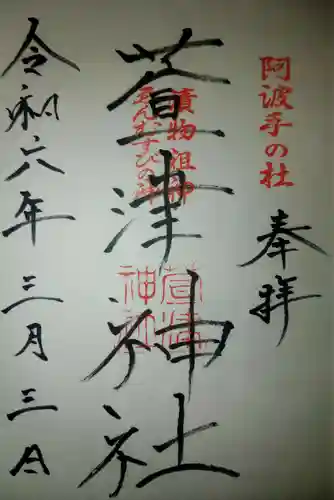 阿波手の杜
奉拝
漬物祖神
ゑんむすびの神
萱津神社
萱津神社
令和六年三月三日